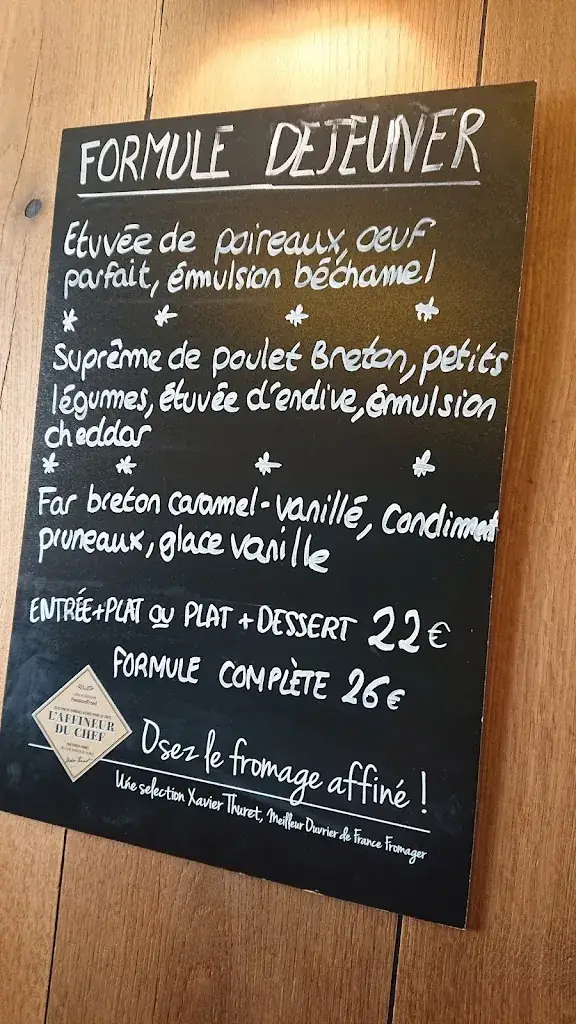 FORMULE DEJEUNER
Etuvée de poireaux, oeuf
parfait, émmulsion béchamel
* * * *
Suprême de poulet Breton, petits
légumes, étuvée d'endive, émmulsion
cheddar
* * * *
Far breton caramel-vanillé, Condiment
pruneaux, glace vanille
ENTRÉE+PLAT OU PLAT + DESSERT 22€
FORMULE COMPLÈTE 26€
L'AFFINEUR
DU CHEF
Osez le fromage affiné !
Une selection Xavier Thuret, Meilleur Ouvrier de France Fromager